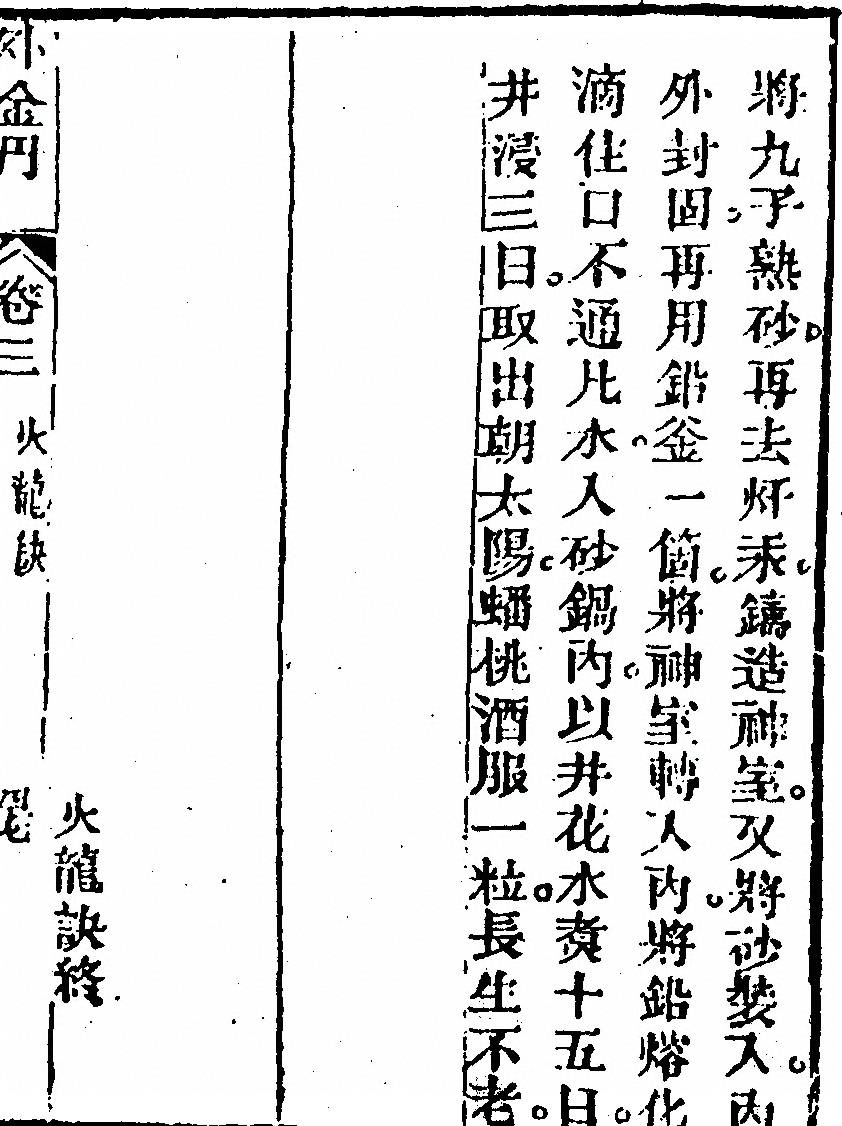 將九子熟砂再去炉汞鑄造神室又將砂裝入內
外封固再用鉛釜一箇將神室轉入內將鉛熔化
滴住口不通比水入砂鍋內以井花水煑十五日
井浸三日取出朝太陽蟠桃酒服一粒長生不老
火龍訣終
外金丹
卷三
火龍訣